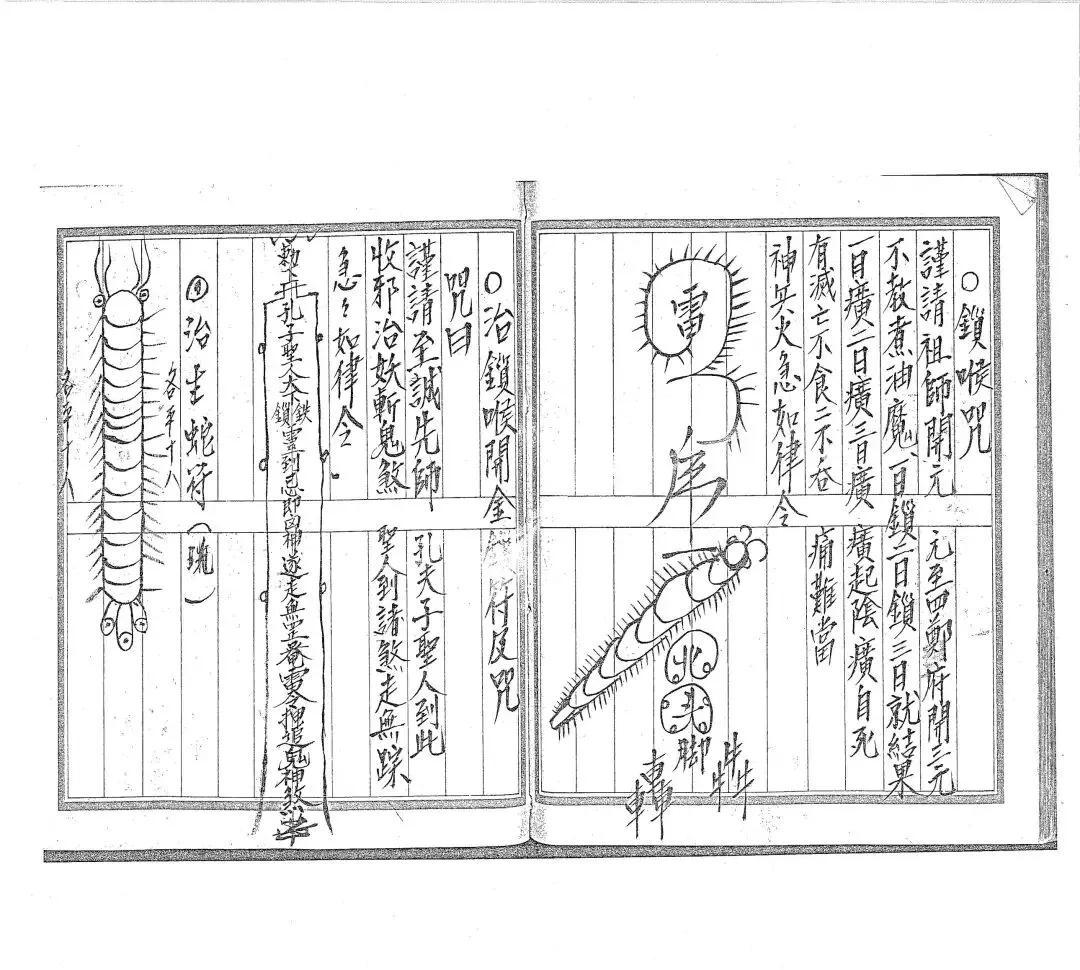 ○鎖喉咒
謹請祖師開元 元至四鄭府開三元
不教煮油魔 一日鎖二日鎖三日就結果
一日癀二日癀三日癀 癀起陰癀自死
有滅亡不食二不吞 痛難當
神兵火急如律令
雷
北
斗
脚
轟
犇
○治鎖喉開金 符及咒
咒曰
謹請至誠先師 孔夫子聖人到此
收邪治妖斬鬼煞 聖人到諸煞走無踪
急々如律令
勅令 孔子聖人 鐵鎖 押 鬼神煞
治生蛇符
各平十八
各平十八